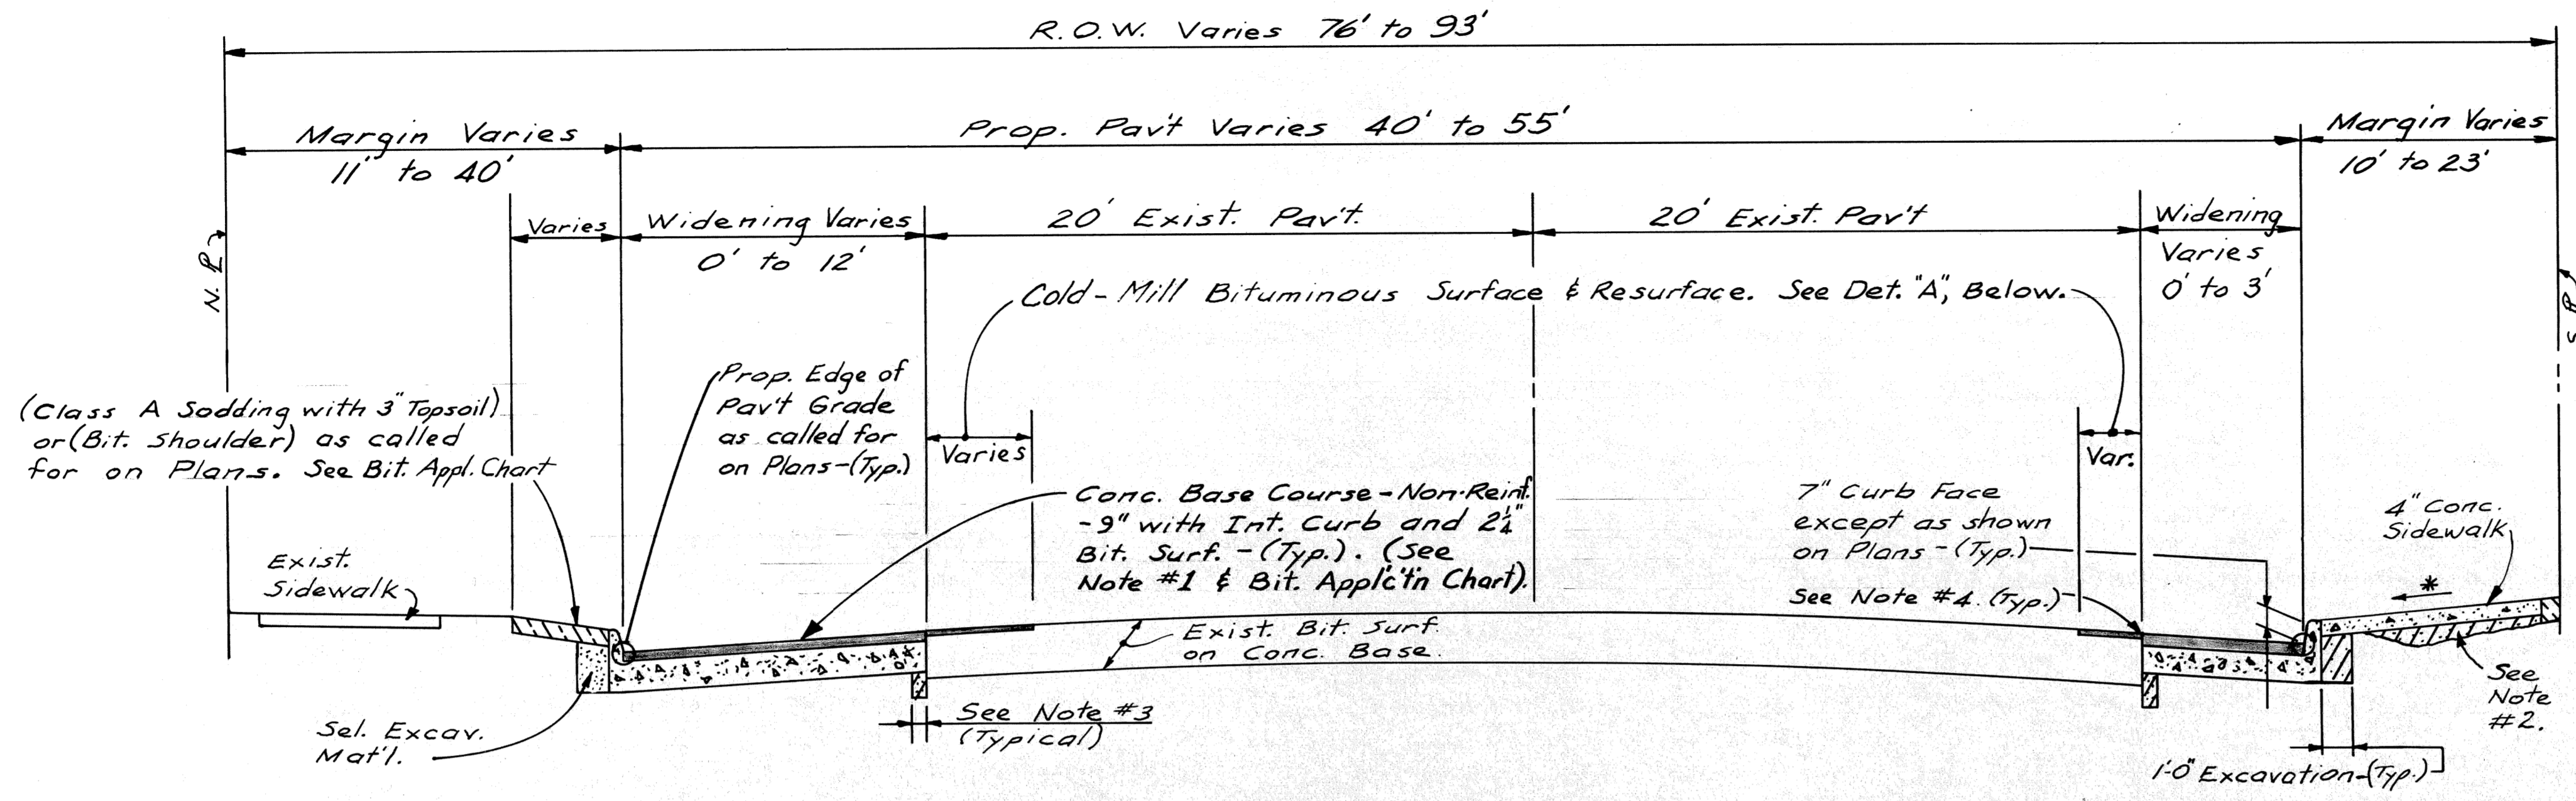 R.O.W. Varies 76' to 93'
Margin Varies
11' to 40'
Prop. Pav't Varies 40' to 55'
Margin Varies
10' to 23'
Varies
Widening Varies
0' to 12'
20' Exist. Pav't.
20' Exist. Pav't
Widening
Varies
0' to 3'
N. P
S P
Cold-Mill Bituminous Surface & Resurface. See Det. "A", Below.
(Class A Sodding with 3" Topsoil)
or (Bit. Shoulder) as called
for on Plans. See Bit. Appl. Chart
Prop. Edge of
Pav't Grade
as called for
on Plans-(Typ.)
Varies
Var.
Conc. Base Course-Non-Reinf.
-9" with Int. Curb and 2¼"
Bit. Surf. -(Typ.). (See
Note #1 & Bit. Applc't'n Chart).
7" Curb Face
except as shown
on Plans-(Typ.)
See Note #4. (Typ.)
4" Conc.
Sidewalk
*
Exist.
Sidewalk
Exist. Bit. Surf.
on Conc. Base.
Sel. Excav.
Mat'l.
See Note #3
(Typical)
See
Note
#2.
1'-0" Excavation-(Typ.)